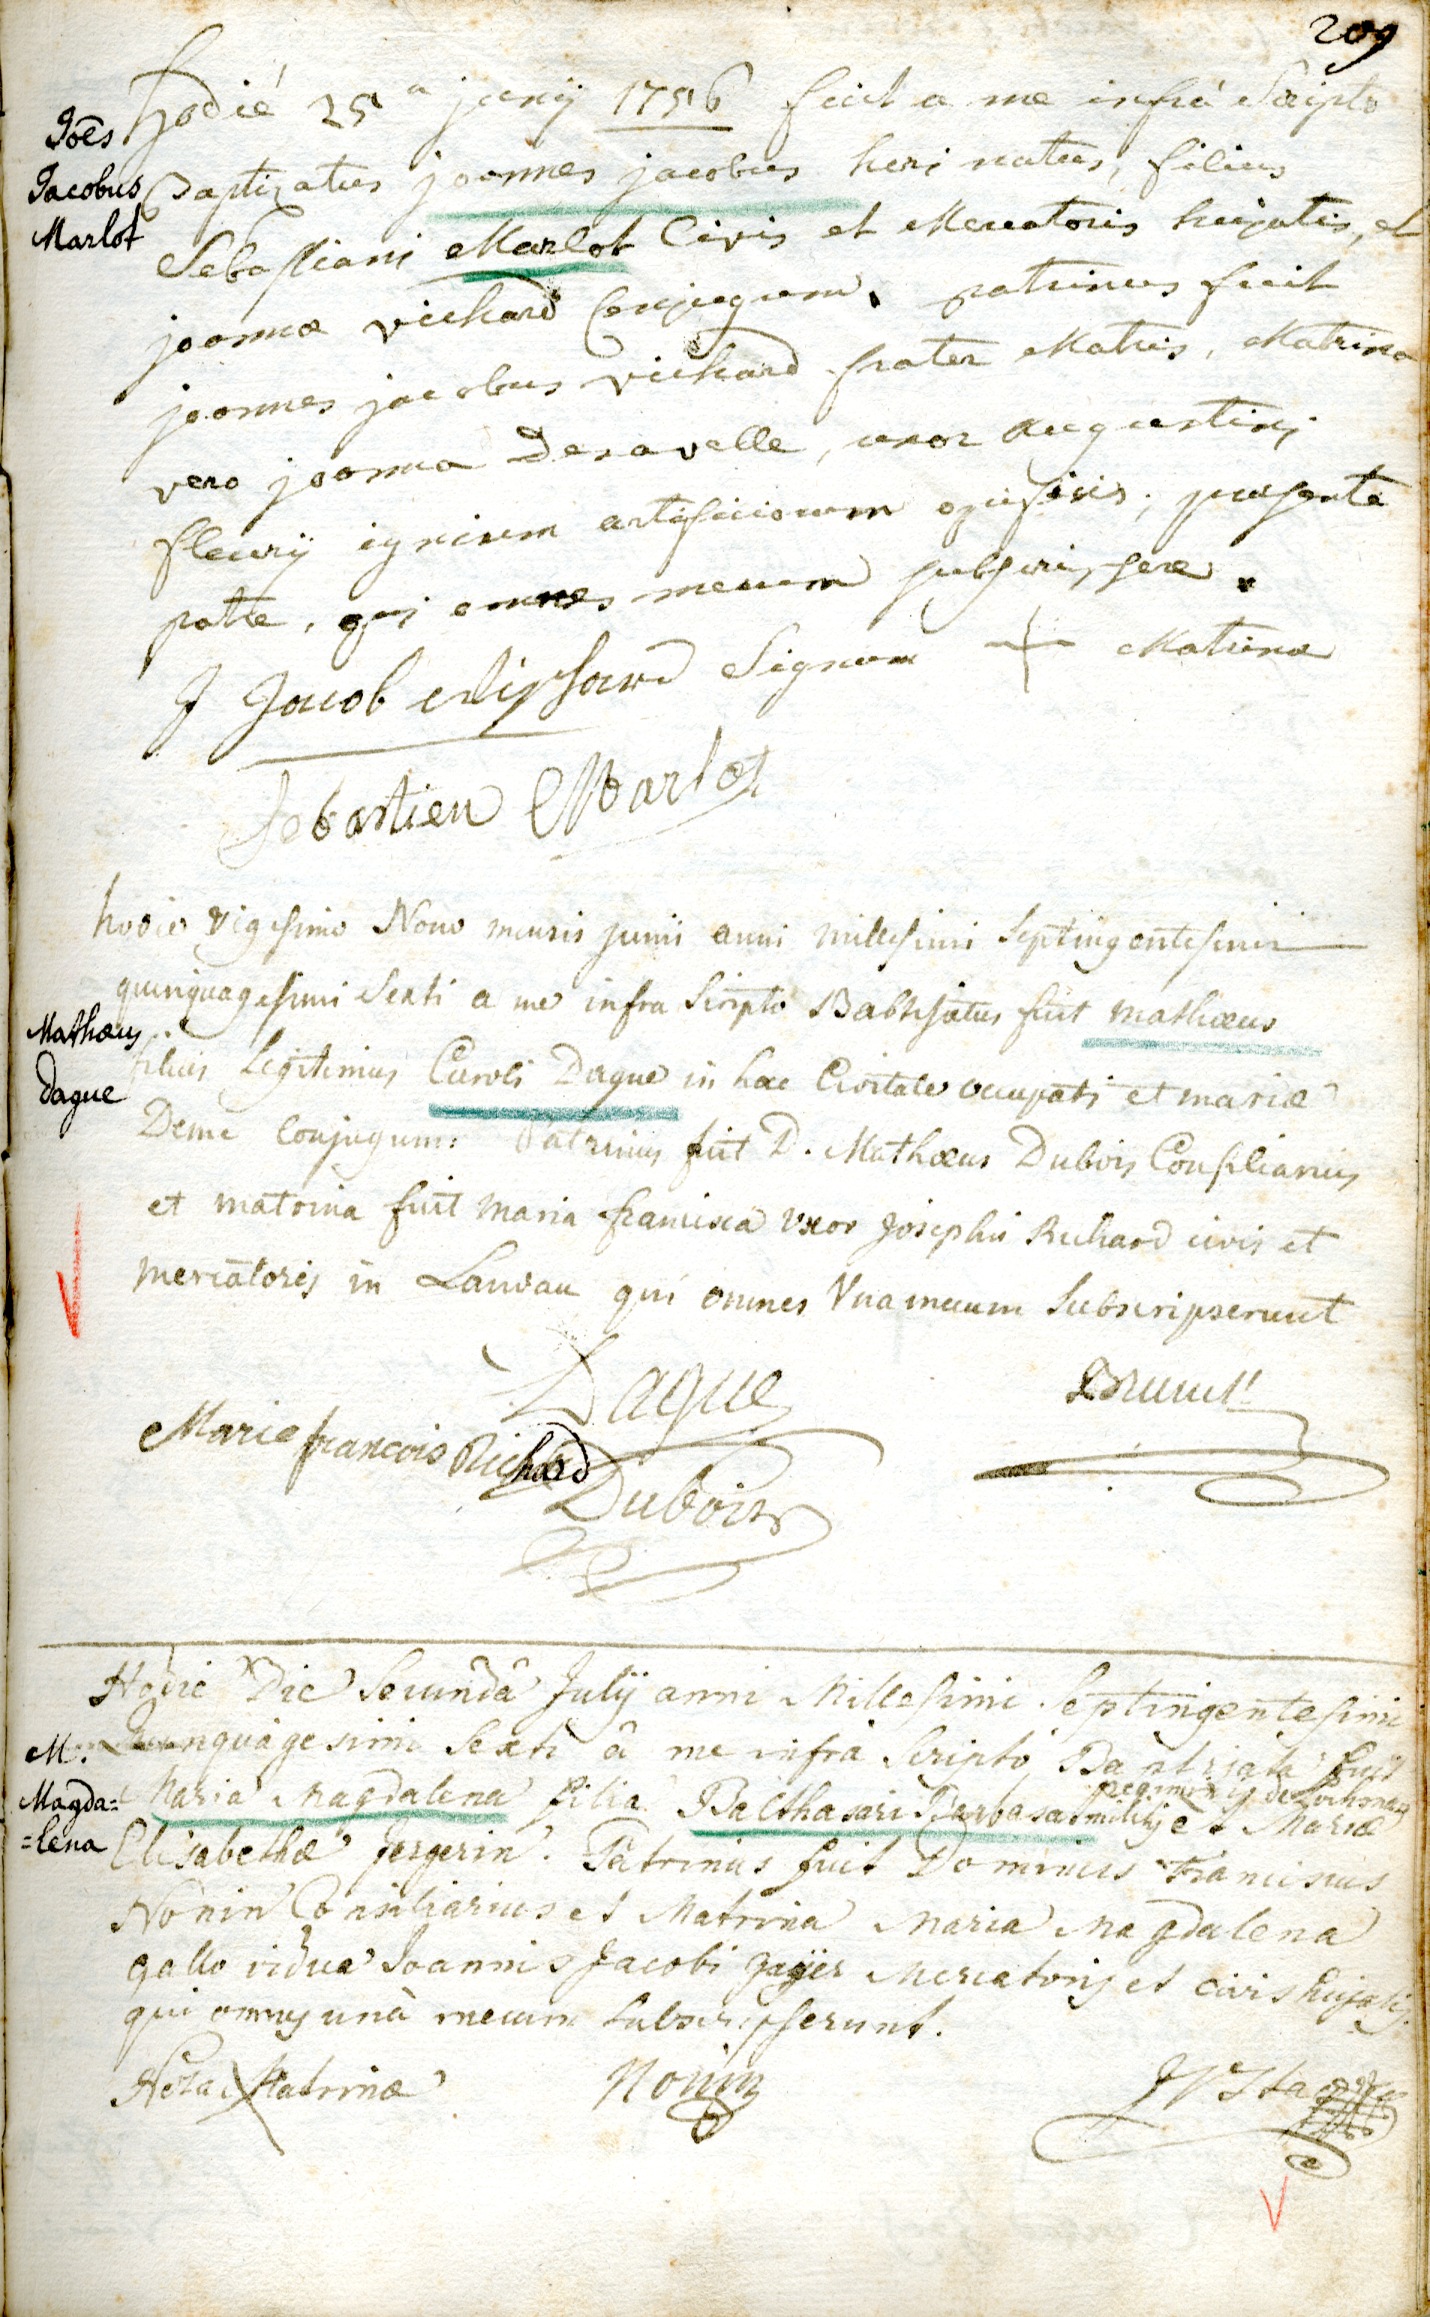 209
Joēs
Jacobus
Marlot
hodié 25a junij 1756 fuit a me infrá Scripto
Baptizatus joannes jacobus heri natus, filius
Sebastiani Marlot Civis et Mercatoris hujatis, et
joannæ vichard Conjugum. patrinus fuit
joannes jacobus vichard frater Matris, Matrina
vero joanna Deravelle, uxor augustini
fleurÿ ignium artificiorum opificis; præsente
patre, qui omnes mecum subscripsere.
J Jacob Signum + Matrinæ
Sebastien Marlot
hodie Vigesimo Nono mensis junii anni millesimi Septingentesimi
quinquagesimi Sexti a me infra Scripto Babtisatus fuit mathæus
Mathæus
Dague
filius Legitimus Caroli Dague in hac Civitate occupati et mariæ
Deme Conjugum: Patrinus fuit D. Mathæus Dubois Consilianus
et matrina fuit maria francisca Uxor Josephi Richard civis et
mercatoris in Landau qui omnes Una mecum Subscripserunt
Dague
Marie francois Richard
Dubois
Hodie Die Secundâ Julij anni Millesimi Septingentesimi
Quinquagesimi Sexti â me infra Scripto Baptisata fuit
M.
Magda=
=lena
Maria Magdalena filia Balthasari Barbasat militis et Mariæ
regiminis de Lochman
Elisabethæ Jergerin. Patrinus fuit Dominus Franciscus
Nonin Consiliarius et Matrina Maria Magdalena
gallo vidua Joannis Jacobi Zaÿer Mercatoris et civis hujatis
qui omnes unà mecum Subscripserunt.
Matrinæ
Nonin